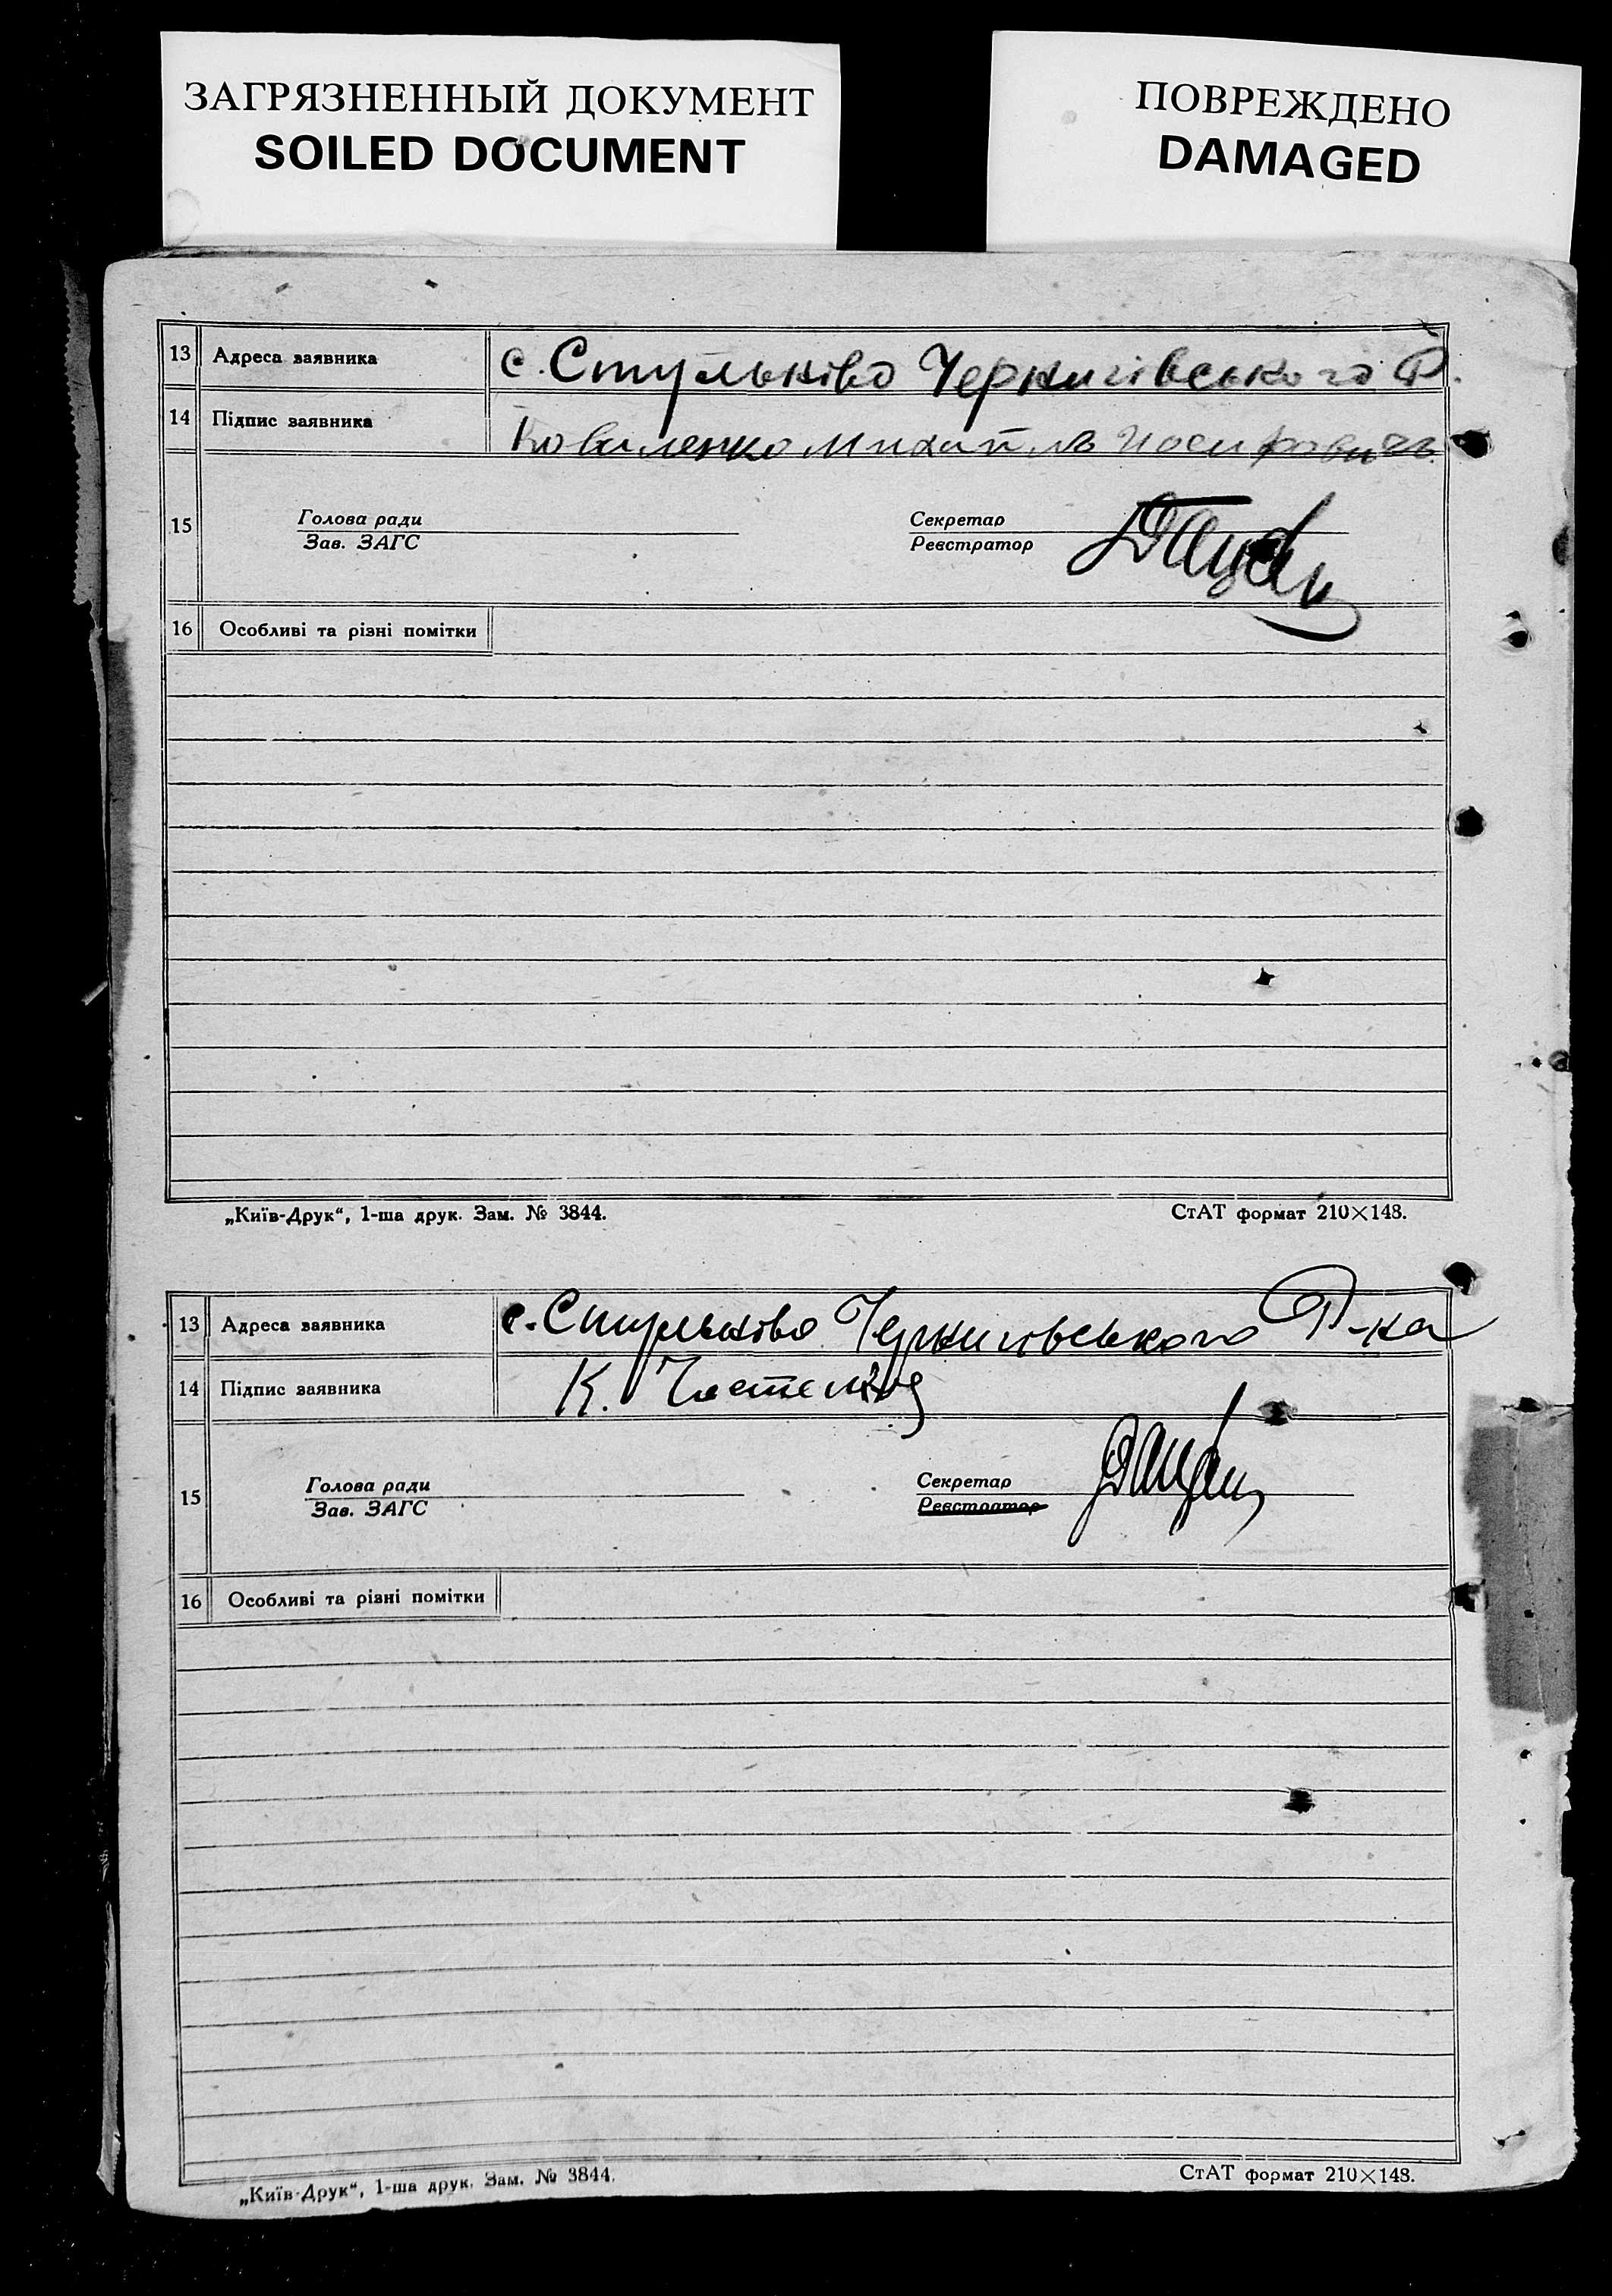 ЗАГРЯЗНЕННЫЙ ДОКУМЕНТ
SOILED DOCUMENT
ПОВРЕЖДЕНО
DAMAGED
13 Адреса заявника с. Стульніво Чернигівського Р.
14 Підпис заявника
15 Голова ради
Зав. ЗАГС
Секретар
Реєстратор
16 Особливі та різні помітки
„Київ-Друк“, 1-ша друк. Зам. № 3844.
СтАТ формат 210×148.
13 Адреса заявника с. Стульніво Чернигівського Р-на
14 Підпис заявника К.
15 Голова ради
Зав. ЗАГС
Секретар
Реєстратор
16 Особливі та різні помітки
„Київ-Друк“, 1-ша друк. Зам. № 3844.
СтАТ формат 210×148.